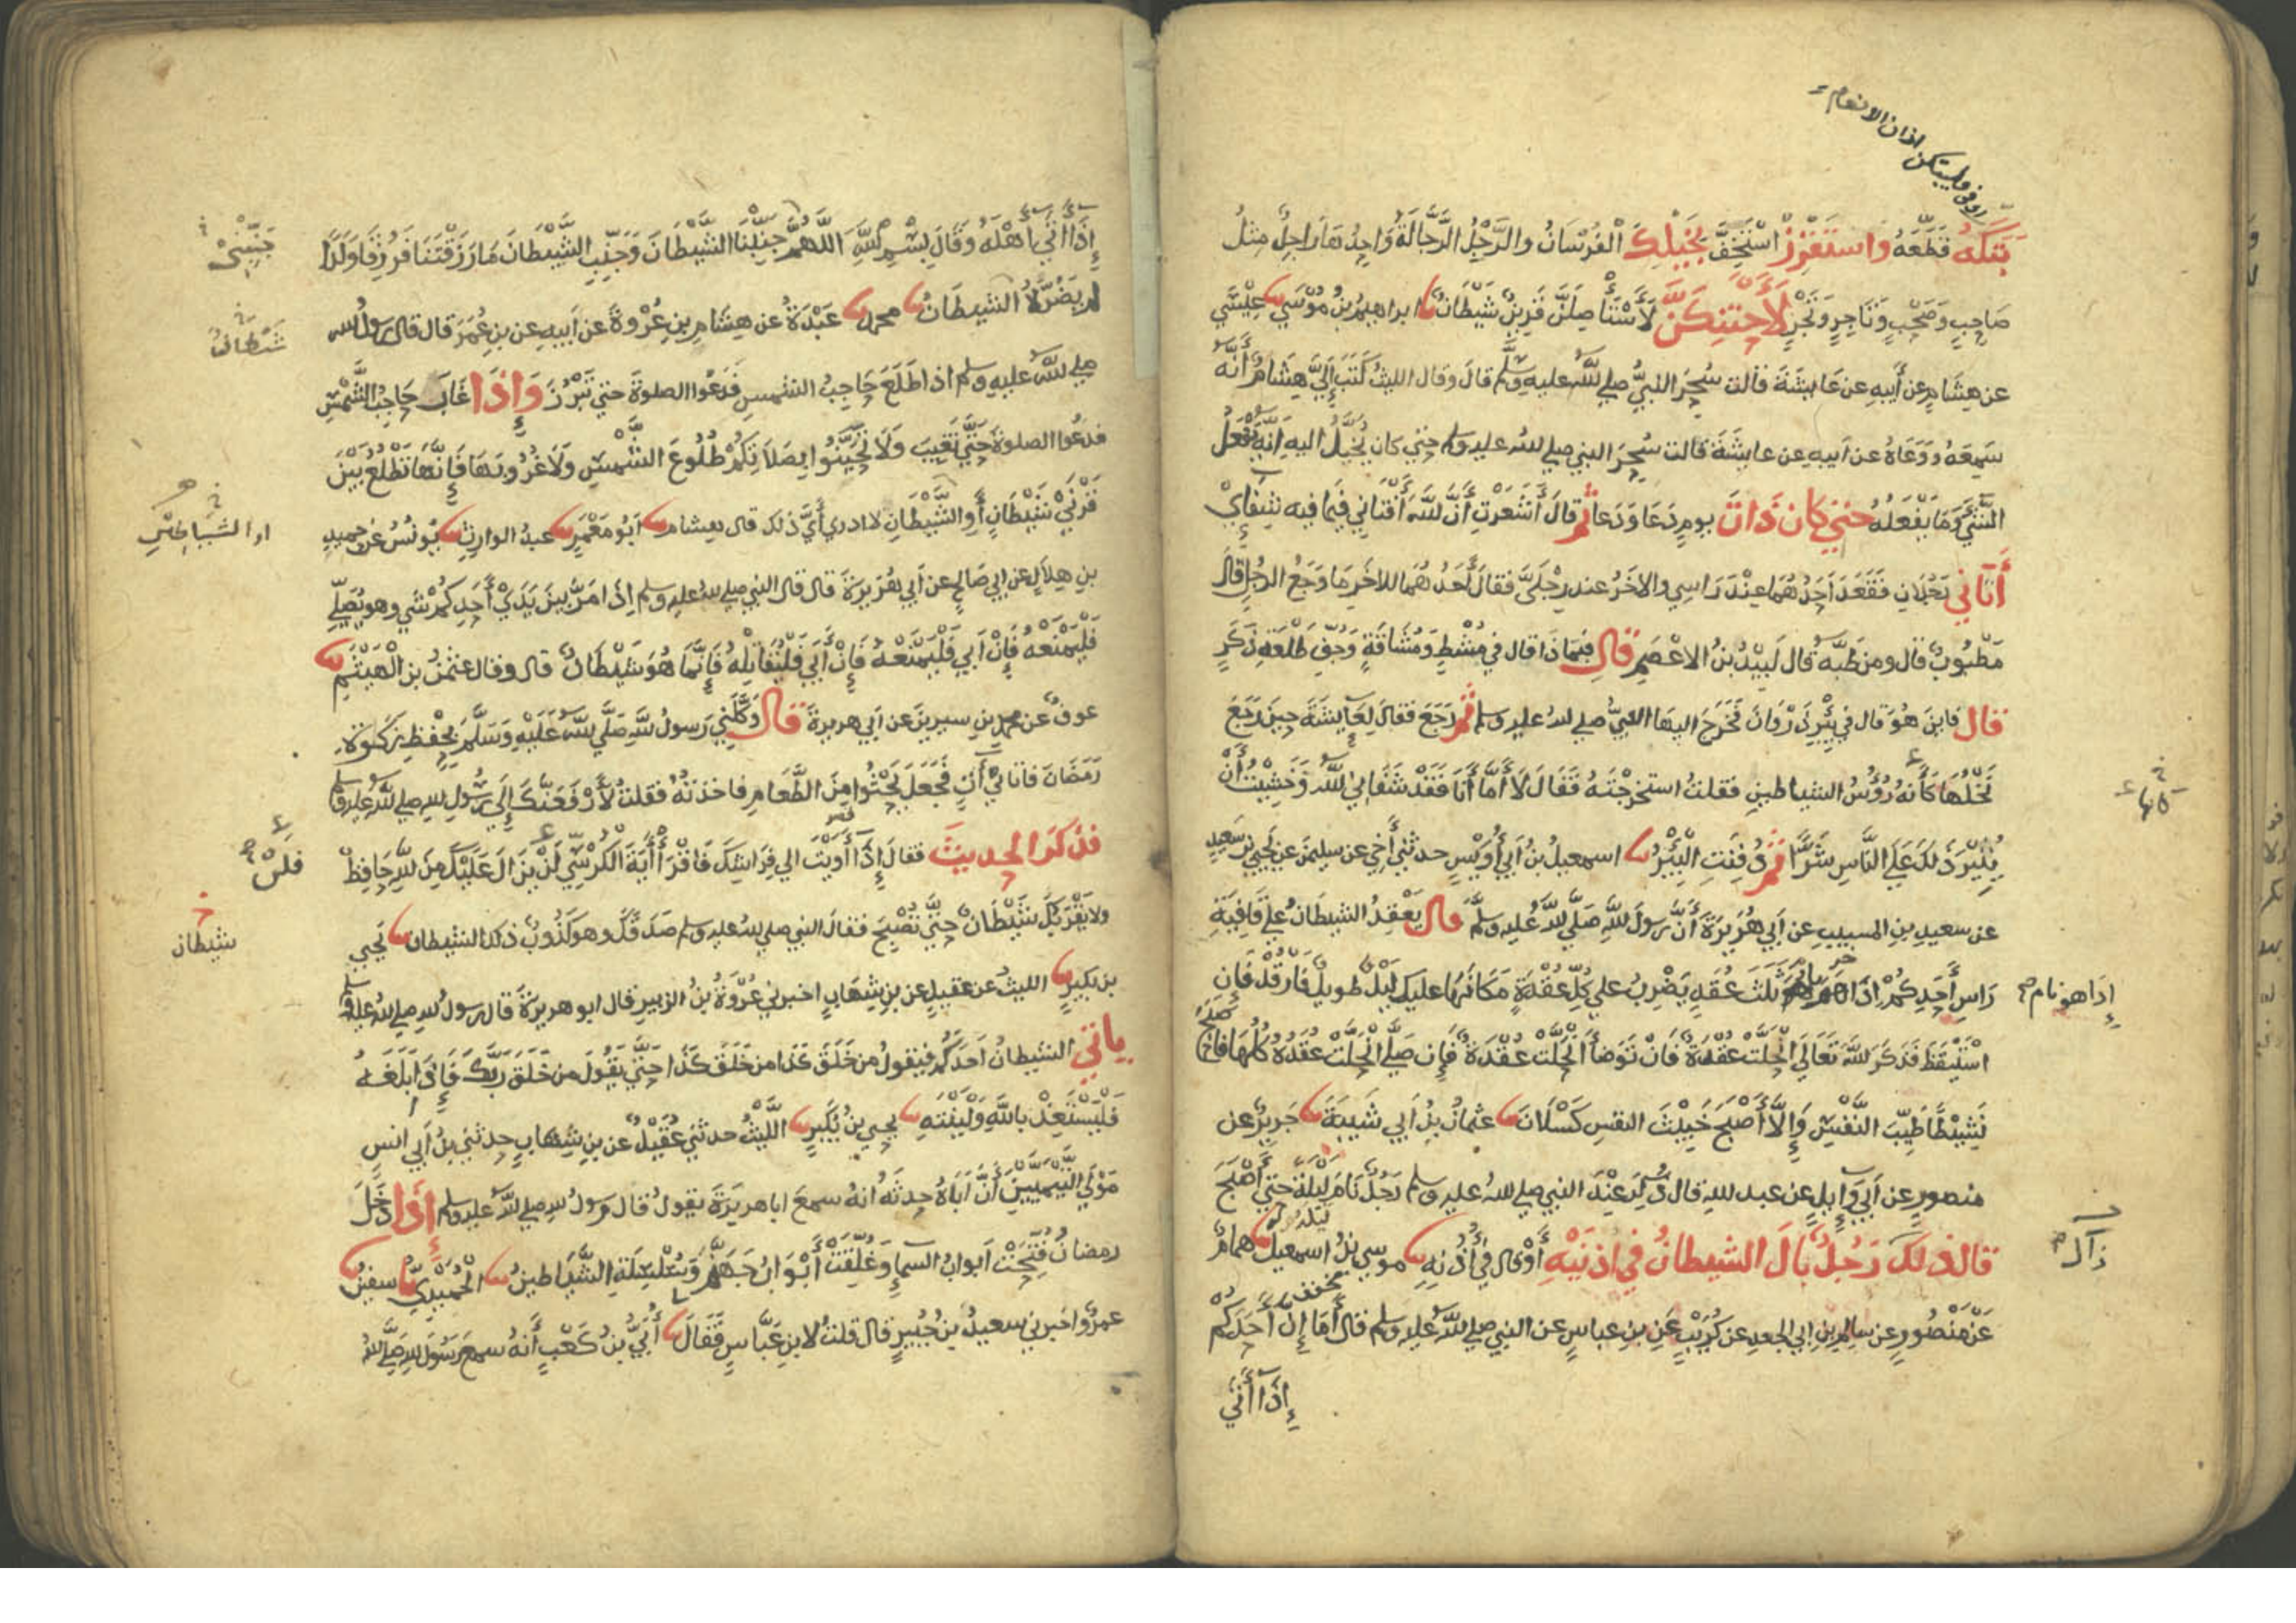 وليبتكن اذان الانعام
بَتَكَهُ قَطَّعَهُ وَاسْتَفْزِزْ اسْتَخِفَّ بِخَيْلِكَ الْفُرْسَانُ والرَّجْلُ الرَّجَّالَةُ وَاحِدُهَا رَاجِلٌ مِثلُ
صَاحِبٍ وَصَحْبٍ وَتَاجِرٍ وَتَجْرٍ لَأَحْتَنِكَنَّ لَأَسْتَأْصِلَنَّ قَرِينٌ شَيْطَانٌ ابراهيمُ بنُ مُوسَي عِيْسَي
عن هِشَامٍ عن أَبِيهِ عن عَايشَةَ قالت سُحِرَ النبيُّ صلي الله عليه وسلم قال وقال الليثُ كَتَبَ إِلَيَّ هِشَامٌ أَنَّهُ
سَمِعَهُ وَوَعَاهُ عن أَبيهِ عن عايشَةَ قالت سُحِرَ النبي صلي الله عليه وسلم حتي كان يُخَيَّلُ اليه انَّهُ يَفْعَلُ
الشَّيْءَ وَمَا يَفْعَلُهُ حتي كان ذَاتَ يومٍ دَعَا وَدَعَا ثُمَّ قالَ أَشَعَرْتِ أَنَّ اللَّهَ أَفْتَانِي فيمَا فيه شِفَايِ
أَتَانِي رَجُلَانِ فَقَعَدَ أَحَدُهُمَا عِنْدَ رَاسِي والاخَرُ عند رِجْلَيَّ فقالَ أَحَدُهُمَا للاخَرِ مَا وَجَعُ الرجُلِ قَالَ
مَطْبُوبٌ قال ومن طَبَّهُ قال لَبِيْدُ بنُ الاعْصَمِ قال فيمَاذَا قال في مُشْطٍ وَمُشَاقَةٍ وَجُفِّ طَلْعَةٍ ذَكَرٍ
قال فاين هُوَ قال في بِئْرِ ذَرْوَانَ فَخَرَجَ اليهَا النبيُّ صلي الله عليه وسلم ثُمَّ رَجَعَ فقال لعَايشَةَ حِينَ رَجَعَ
نَخْلُهَا كَأَنَّهُ رُؤُسُ الشياطينِ فقلتُ استخرجْتَهُ فقَالَ لَا أَمَّا أَنَا فَقَدْ شَفَانِي اللَّهُ وَخَشِيْتُ أَنْ
كانها
يُثِيْرَ ذَلكَ عَلَي النَّاسِ شَرًّا ثُمَّ دُفِنَتِ الْبِئْرُ اسمعيلُ بنُ أَبي أُوَيْسٍ حدثني أَخِي عن سليمنَ عن يَحيي بنِ سَعِيدٍ
عن سعيدِ بنِ المسيبِ عن أَبي هُرَيرَةَ أَنَّ رسولَ اللَّهِ صَلَّي اللَّهُ عليه وسلَّم قال يَعْقِدُ الشيطانُ علي قَافِيَةِ
رَاسِ أَحَدِكُمْ اذَا ثَلثَ عُقَدٍ يَضْرِبُ علي كُلِّ عُقْدَةٍ مَكَانَهَا عليكَ لَيْلٌ طويلٌ فَارْقُدْ فَإِن
إِذَا هو نام
اسْتَيْقَظَ فَذَكَرَ اللَّهَ تَعَالَي انْحَلَّتْ عُقْدَةٌ فَإِنْ تَوَضأَ انْحَلَّتْ عُقْدَةٌ فَإِن صَلَّي انْحَلَّتْ عُقَدُهُ كُلُّهَا فَاصْبَحَ
نَشِيْطًا طَيِّبَ النَّفْسِ وَإِلَّا أَصْبَحَ خَبِيْثَ النفسِ كَسْلَانَ عثمانُ بنُ أَبي شَيبَةَ جَرِيرٌ عن
منصورٍ عن أَبي وَايلٍ عن عبد للهِ قال ذُكِرَ عِنْدَ النبي صلي الله عليه وسلم رَجُلٌ نَامَ لَيْلَةً حَتي أَصْبَحَ
قال ذلك رَجُلٌ بَالَ الشيطانُ في اذنَيْهِ أَوْ قال في أُذُنِهِ موسي بنُ اسمعيلَ همامٌ
عَنْ مَنْصُورٍ عن سالمِ بنِ ابي الجعدِ عن كُرَيْبٍ عَنِ بنِ عباسٍ عن النبي صلي الله عليه وسلم قال أَمَا إِنَّ أَحَدَكُم
إِذَا أَتَي
إِذَا أَتَي أَهْلَهُ وَقَالَ بِسْمِ اللَّهِ اللَّهُمَّ جَنِّبْنَا الشَّيْطَانَ وَجَنِّبِ الشَّيْطَانَ مَا رَزَقْتَنَا فَرُزِقَا وَلَدًا
جنبني
لم يَضُرَّهُ الشيطَانُ محمد عَبْدَةُ عن هِشَامِ بنِ عُرْوَةَ عن أَبيهِ عن بنِ عُمَرَ قال قال رسولُ الله
شيطان
صلي الله عليه وسلم اذا طَلَعَ حَاجِبُ الشمسِ فَدَعُوا الصلوةَ حتي تَبْرُزَ وَإِذَا غَابَ حَاجِبُ الشَّمْسِ
فدعُوا الصلوةَ حَتَّي تَغِيبَ وَلَا تَحَيَّنُوا بِصَلَاتِكُمْ طُلُوعَ الشَّمْسِ وَلَا غُرُوبَهَا فَإِنَّهَا تَطْلُعُ بَيْنَ
قَرْنَيْ شَيْطَانٍ أَوِ الشَّيْطَانِ لا ادري أَيَّ ذلك قال هشام أَبُو مَعْمَرٍ عبدُ الوارثِ يُونُسُ عن حميدِ
او الشياطين
بنِ هِلَالٍ عن ابي صَالِحٍ عن أَبي هُرَيرَةَ قال قال النبي صلي الله عليه وسلم اِذَا مَرَّ بينَ يَدَيْ أَحَدِكُمْ شي وهو يُصَلِّي
فَلْيَمْنَعْهُ فَإِنْ أَبَي فَلْيَمْنَعْهُ فَإِنْ أَبَي فَلْيُقَاتِلْهُ فَإِنَّمَا هُوَ شَيْطَانٌ قال وقال عثمنُ بن الْهَيْثَمِ
عوفٌ عن محمدِ بنِ سيرينَ عن أَبي هريرةَ قال وَكَّلَنِي رَسولُ اللَّهِ صَلَّي اللَّهُ عَلَيْهِ وَسَلَّمَ بِحِفْظِ زكوةِ
رَمَضَانَ فأتانِي آتٍ فَجَعَلَ يَحْثُوا مِنَ الطَّعَامِ فاخذتُهُ فقلتُ لَأَرْفَعَنَّكَ إِلَي رَسُولِ للهِ صلي اللَّه عليه وسلم
فذكَرَ الحديثَ فقالَ إِذَا أَوَيْتَ الي فِرَاشِكَ فَاقْرَأْ أَيَةَ الْكُرْسِي لَنْ يَزَالَ عَلَيْكَ مِنَ اللَّهِ حَافِظٌ
شيطان
ولا يَقْرَبُكَ شَيْطَانٌ حتَّي تُصْبِحَ فقالَ النبي صلي الله عليه وسلم صَدَقَكَ وهو كَذُوبٌ ذكَ الشيطان يَحيي
بن بُكيرٍ الليثُ عن عقيلٍ عن بن شِهَابٍ اخبرني عُرْوَةُ بنُ الزبيرِ قال ابو هريرَةَ قال رسولُ للهِ صلي الله عليه وسلم
ياتي الشيطانُ احدَكُم فيقولُ من خَلَقَ كَذَا من خَلَقَ كَذَا حَتَّي يَقُولَ من خَلَقَ رَبَّكَ فَإِذَا بَلَغَهُ
فَلْيَسْتَعِذْ باللَّهِ وَلْيَنْتَهِ يحيي بنُ بُكَيرٍ اللَّيْثُ حدثني عُقَيْلٌ عن بنِ شِهَابٍ حدثني بنُ أَبي انسٍ
مَوْلَي التَّيْمِيِّينَ أَنَّ أَبَاهُ حدثَهُ انهُ سمعَ ابا هريرَةَ يقولُ قال رسولُ للهِ صلي اللَّه عليه وسلم إِذَا دَخَلَ
رمضانُ فُتِّحَتْ أَبوابُ السمآءِ وَغُلِّقَتْ أَبْوَابُ جَهَنَّمَ وَسُلْسِلَتِ الشَّيَاطينُ الْحُمَيْدِيُّ سفينُ
عمرٌو اخبرني سعيدُ بنُ جُبَيرٍ قال قلتُ لابنِ عَبَّاسٍ فَقَالَ أُبَيُّ بنُ كَعْبٍ أَنهُ سمع رَسُولَ للهِ صَلَّي الله